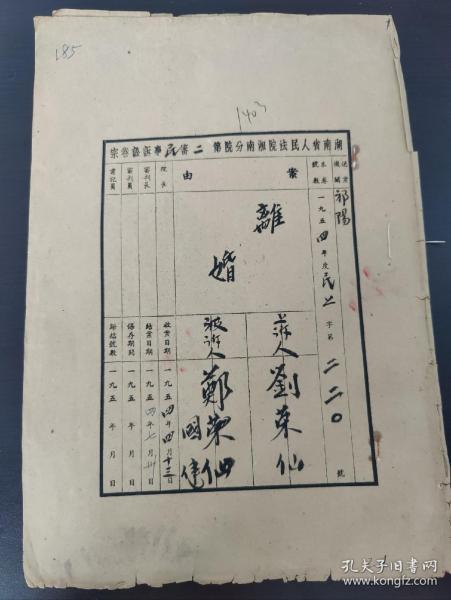 185
1403
湖南省人民法院湘南分院第二審民事訴訟卷宗
送案機關
祁陽
本卷號數
一九五四年度民上字第二二〇號
案由
離婚
上訴人
劉荣仙
被訴人
鄭荣仙
國
院長
審判長
審判員
書記員
收案日期
一九五四年四月十三日
結案日期
一九五四年七月 日
保存期間
一九五 年 月 日
歸檔號數
一九五 年 月 日
孔夫子旧书网
www.kongfz.com